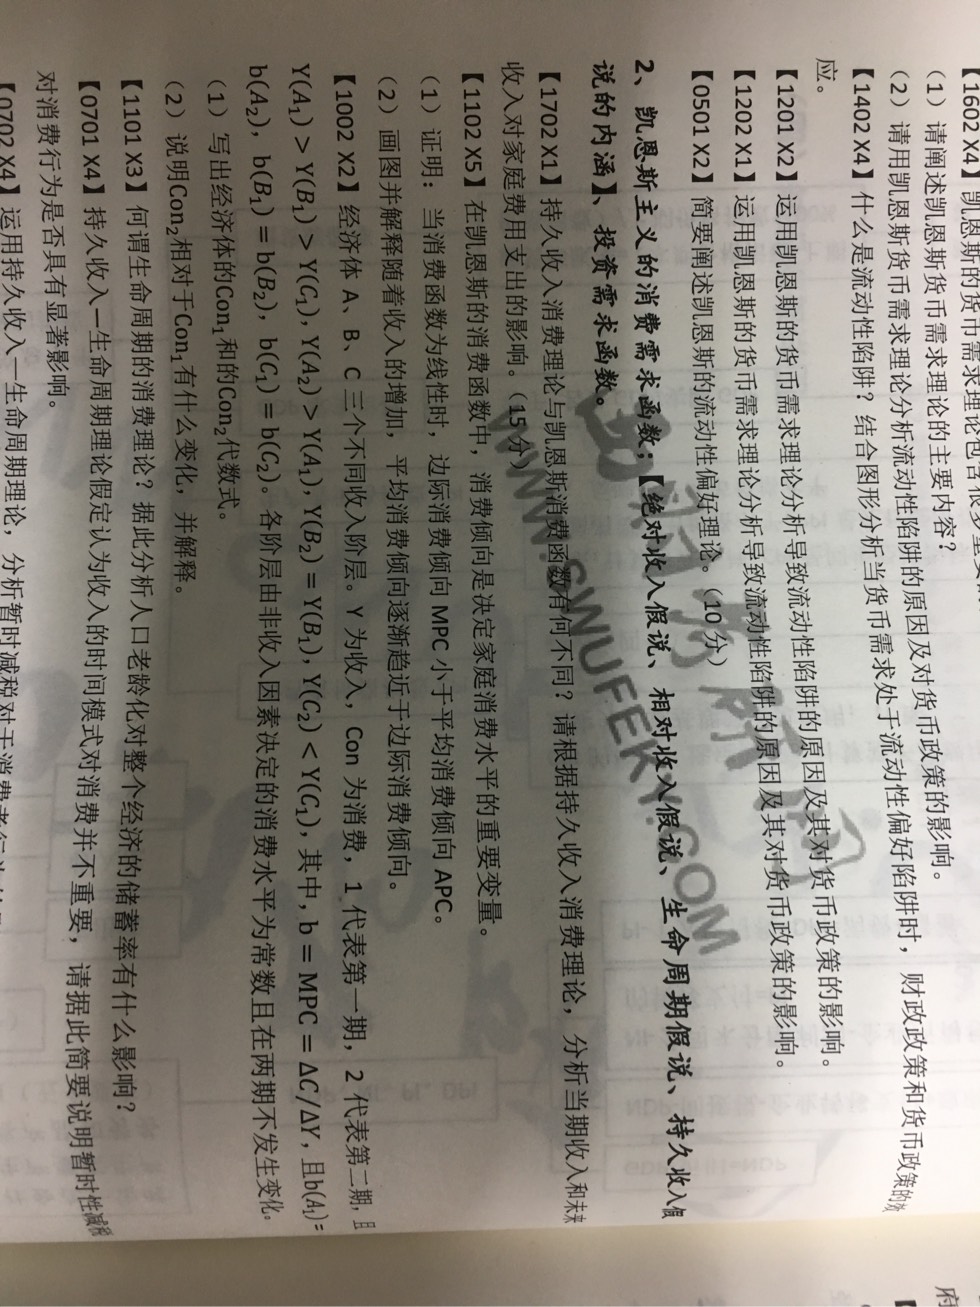 【1602 X4】凯恩斯的货币需求理论包含
（1）请阐述凯恩斯货币需求理论的主要内容？
（2）请用凯恩斯货币需求理论分析流动性陷阱的原因及对货币政策的影响。
【1402 X4】什么是流动性陷阱？结合图形分析当货币需求处于流动性偏好陷阱时，财政政策和货币政策的效
应。
【1201 X2】运用凯恩斯的货币需求理论分析导致流动性陷阱的原因及其对货币政策的影响。
【1202 X1】运用凯恩斯的货币需求理论分析导致流动性陷阱的原因及其对货币政策的影响。
【0501 X2】简要阐述凯恩斯的流动性偏好理论。（10 分）
2、凯恩斯主义的消费需求函数；【绝对收入假说、相对收入假说、生命周期假说、持久收入假
说的内涵】、投资需求函数。
【1702 X1】持久收入消费理论与凯恩斯消费函数有何不同？请根据持久收入消费理论，分析当期收入和未来
收入对家庭费用支出的影响。（15 分）
【1102 X5】在凯恩斯的消费函数中，消费倾向是决定家庭消费水平的重要变量。
（1）证明：当消费函数为线性时，边际消费倾向 MPC 小于平均消费倾向 APC。
（2）画图并解释随着收入的增加，平均消费倾向逐渐趋近于边际消费倾向。
【1002 X2】经济体 A、B、C 三个不同收入阶层。Y 为收入，Con 为消费，1 代表第一期，2 代表第二期，且
Y(A₁) > Y(B₁) > Y(C₁)，Y(A₂) > Y(A₁)，Y(B₂) = Y(B₁)，Y(C₂) < Y(C₁)，其中，b = MPC = ΔC/ΔY，且b(A₁) =
b(A₂)，b(B₁) = b(B₂)，b(C₁) = b(C₂)。各阶层由非收入因素决定的消费水平为常数且在两期不发生变化。
（1）写出经济体的Con₁和的Con₂代数式。
（2）说明Con₂相对于Con₁有什么变化，并解释。
【1101 X3】何谓生命周期的消费理论？据此分析人口老龄化对整个经济的储蓄率有什么影响？
【0701 X4】持久收入—生命周期理论假定认为收入的时间模式对消费并不重要，请据此简要说明暂时性减税
对消费行为是否具有显著影响。
【0702 X4】运用持久收入—生命周期理论，分析暂时减税对于消费者行为的
WWW.SWUFEKY.COM
府